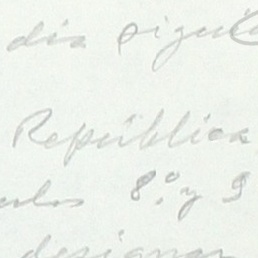 dia sigui
República
ulos 8º y 9
designar